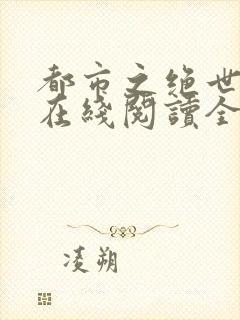 都市之绝世
在綫閱讀全
凌朔